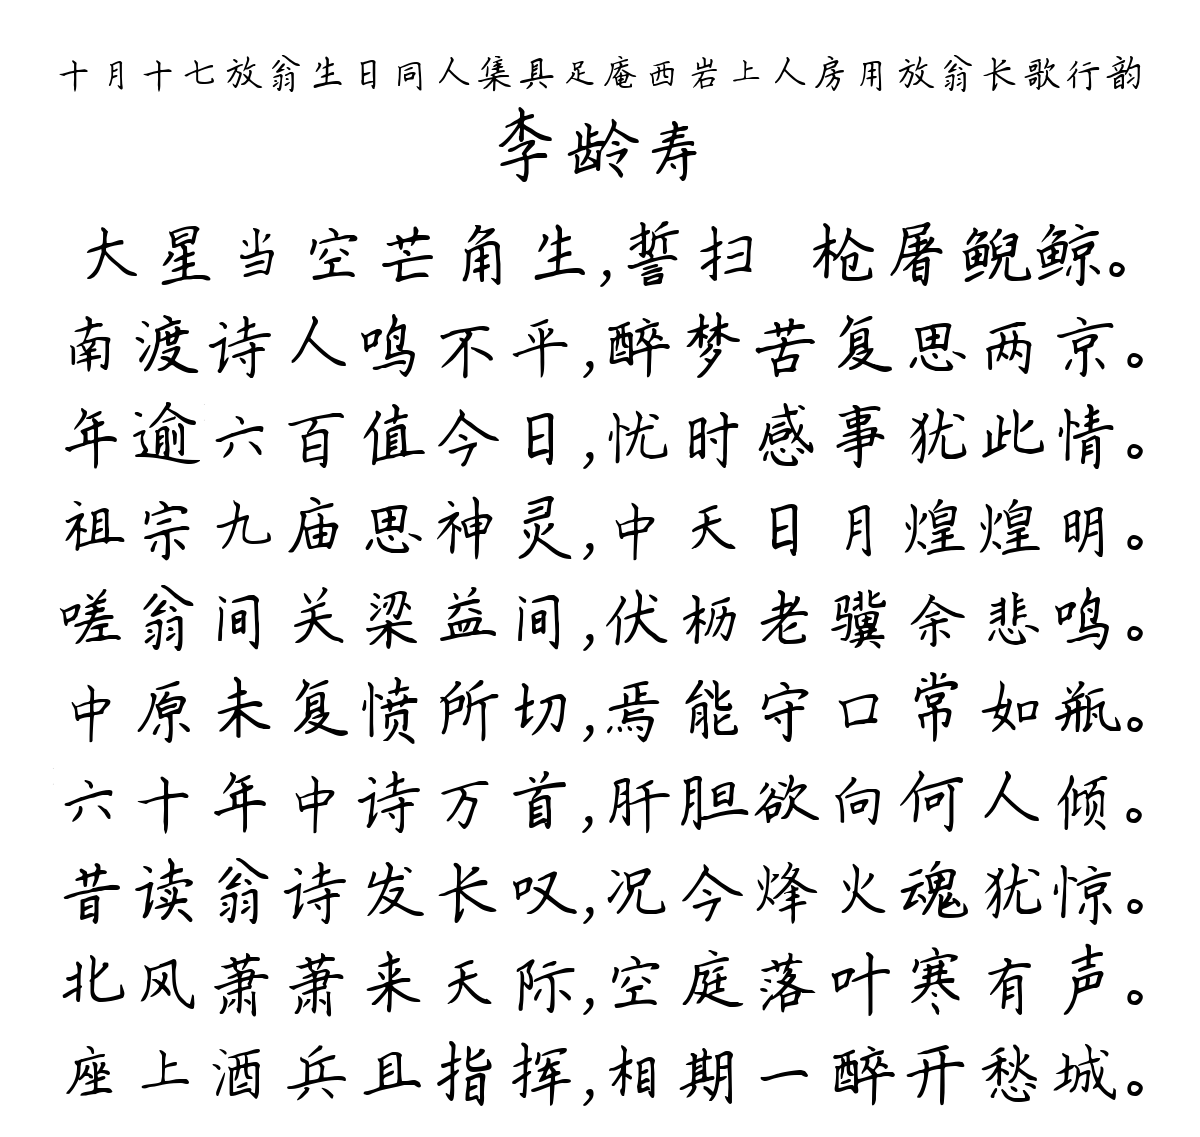 十月十七放翁生日同人集具足庵西岩上人房用放翁长歌行韵
李龄寿
大星当空芒角生,誓扫 枪屠鲵鲸。
南渡诗人鸣不平,醉梦苦复思两京。
年逾六百值今日,忧时感事犹此情。
祖宗九庙思神灵,中天日月煌煌明。
嗟翁间关梁益间,伏枥老骥余悲鸣。
中原未复愤所切,焉能守口常如瓶。
六十年中诗万首,肝胆欲向何人倾。
昔读翁诗发长叹,况今烽火魂犹惊。
北风萧萧来天际,空庭落叶寒有声。
座上酒兵且指挥,相期一醉开愁城。